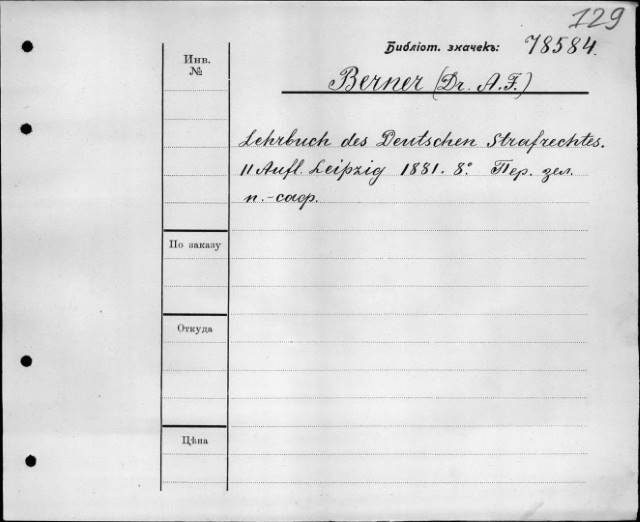 129
Библіот. значекъ: 78584.
Инв. №
Berner (Dr. A.F.)
Lehrbuch des Deutschen Strafrechtes.
11 Aufl. Leipzig 1881. 8.° Пер. зел.
п.-саф.
По заказу
Откуда
Цѣна